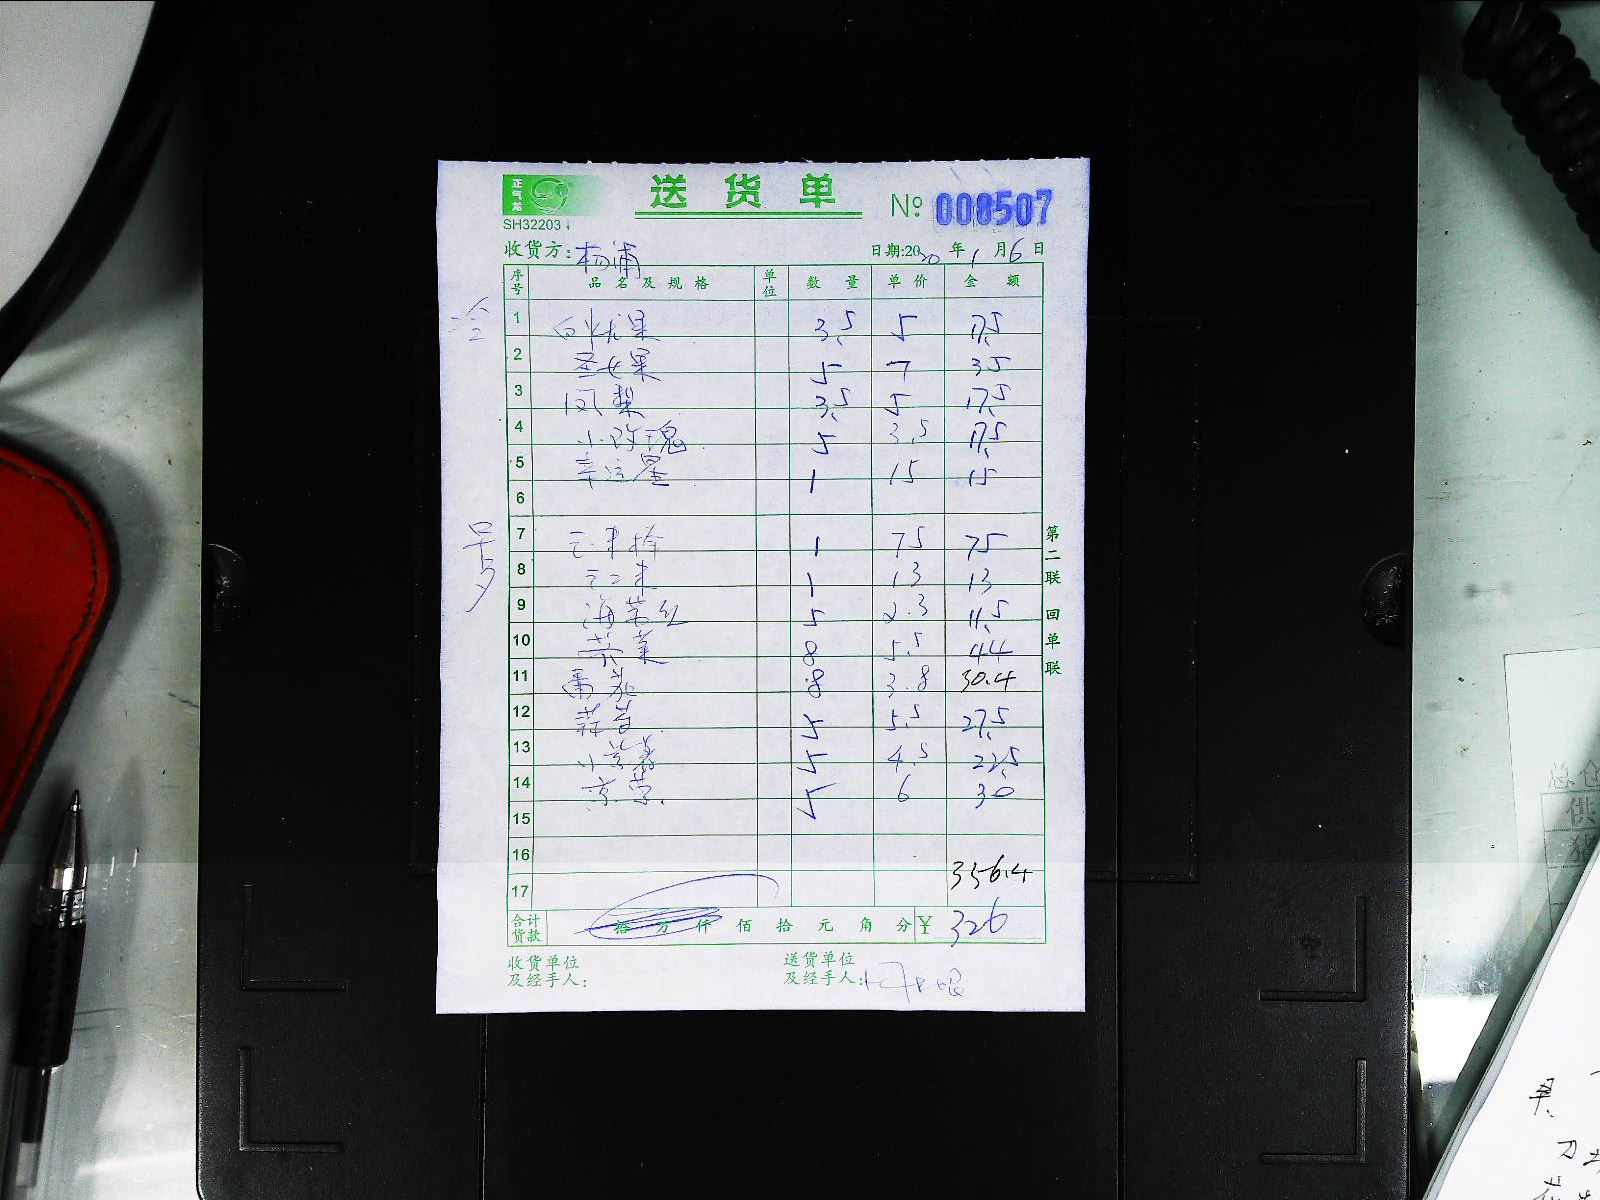 正气龙
送货单
№ 008507
SH32203
收货方: 杨浦
日期:2020年1月6日
序号 品名及规格 单位 数量 单价 金额
冷
1 3.5 5 17.5
2 圣女果 5 7 35
3 凤梨 3.5 5 17.5
4 小玫瑰 5 3.5 17.5
5 幸运星 1 15 15
6
7 1 75 75
8 1 13 13
9 5 2.3 11.5
10 8 5.5 44
11 番茄 8 3.8 30.4
12 5 5.5 27.5
13 5 4.5 22.5
14 5 6 30
15
16
356.4
17
合计货款 拾万仟佰拾元角分 ¥ 326
收货单位
及经手人:
送货单位
及经手人:
第二联 回单联
总仓
供